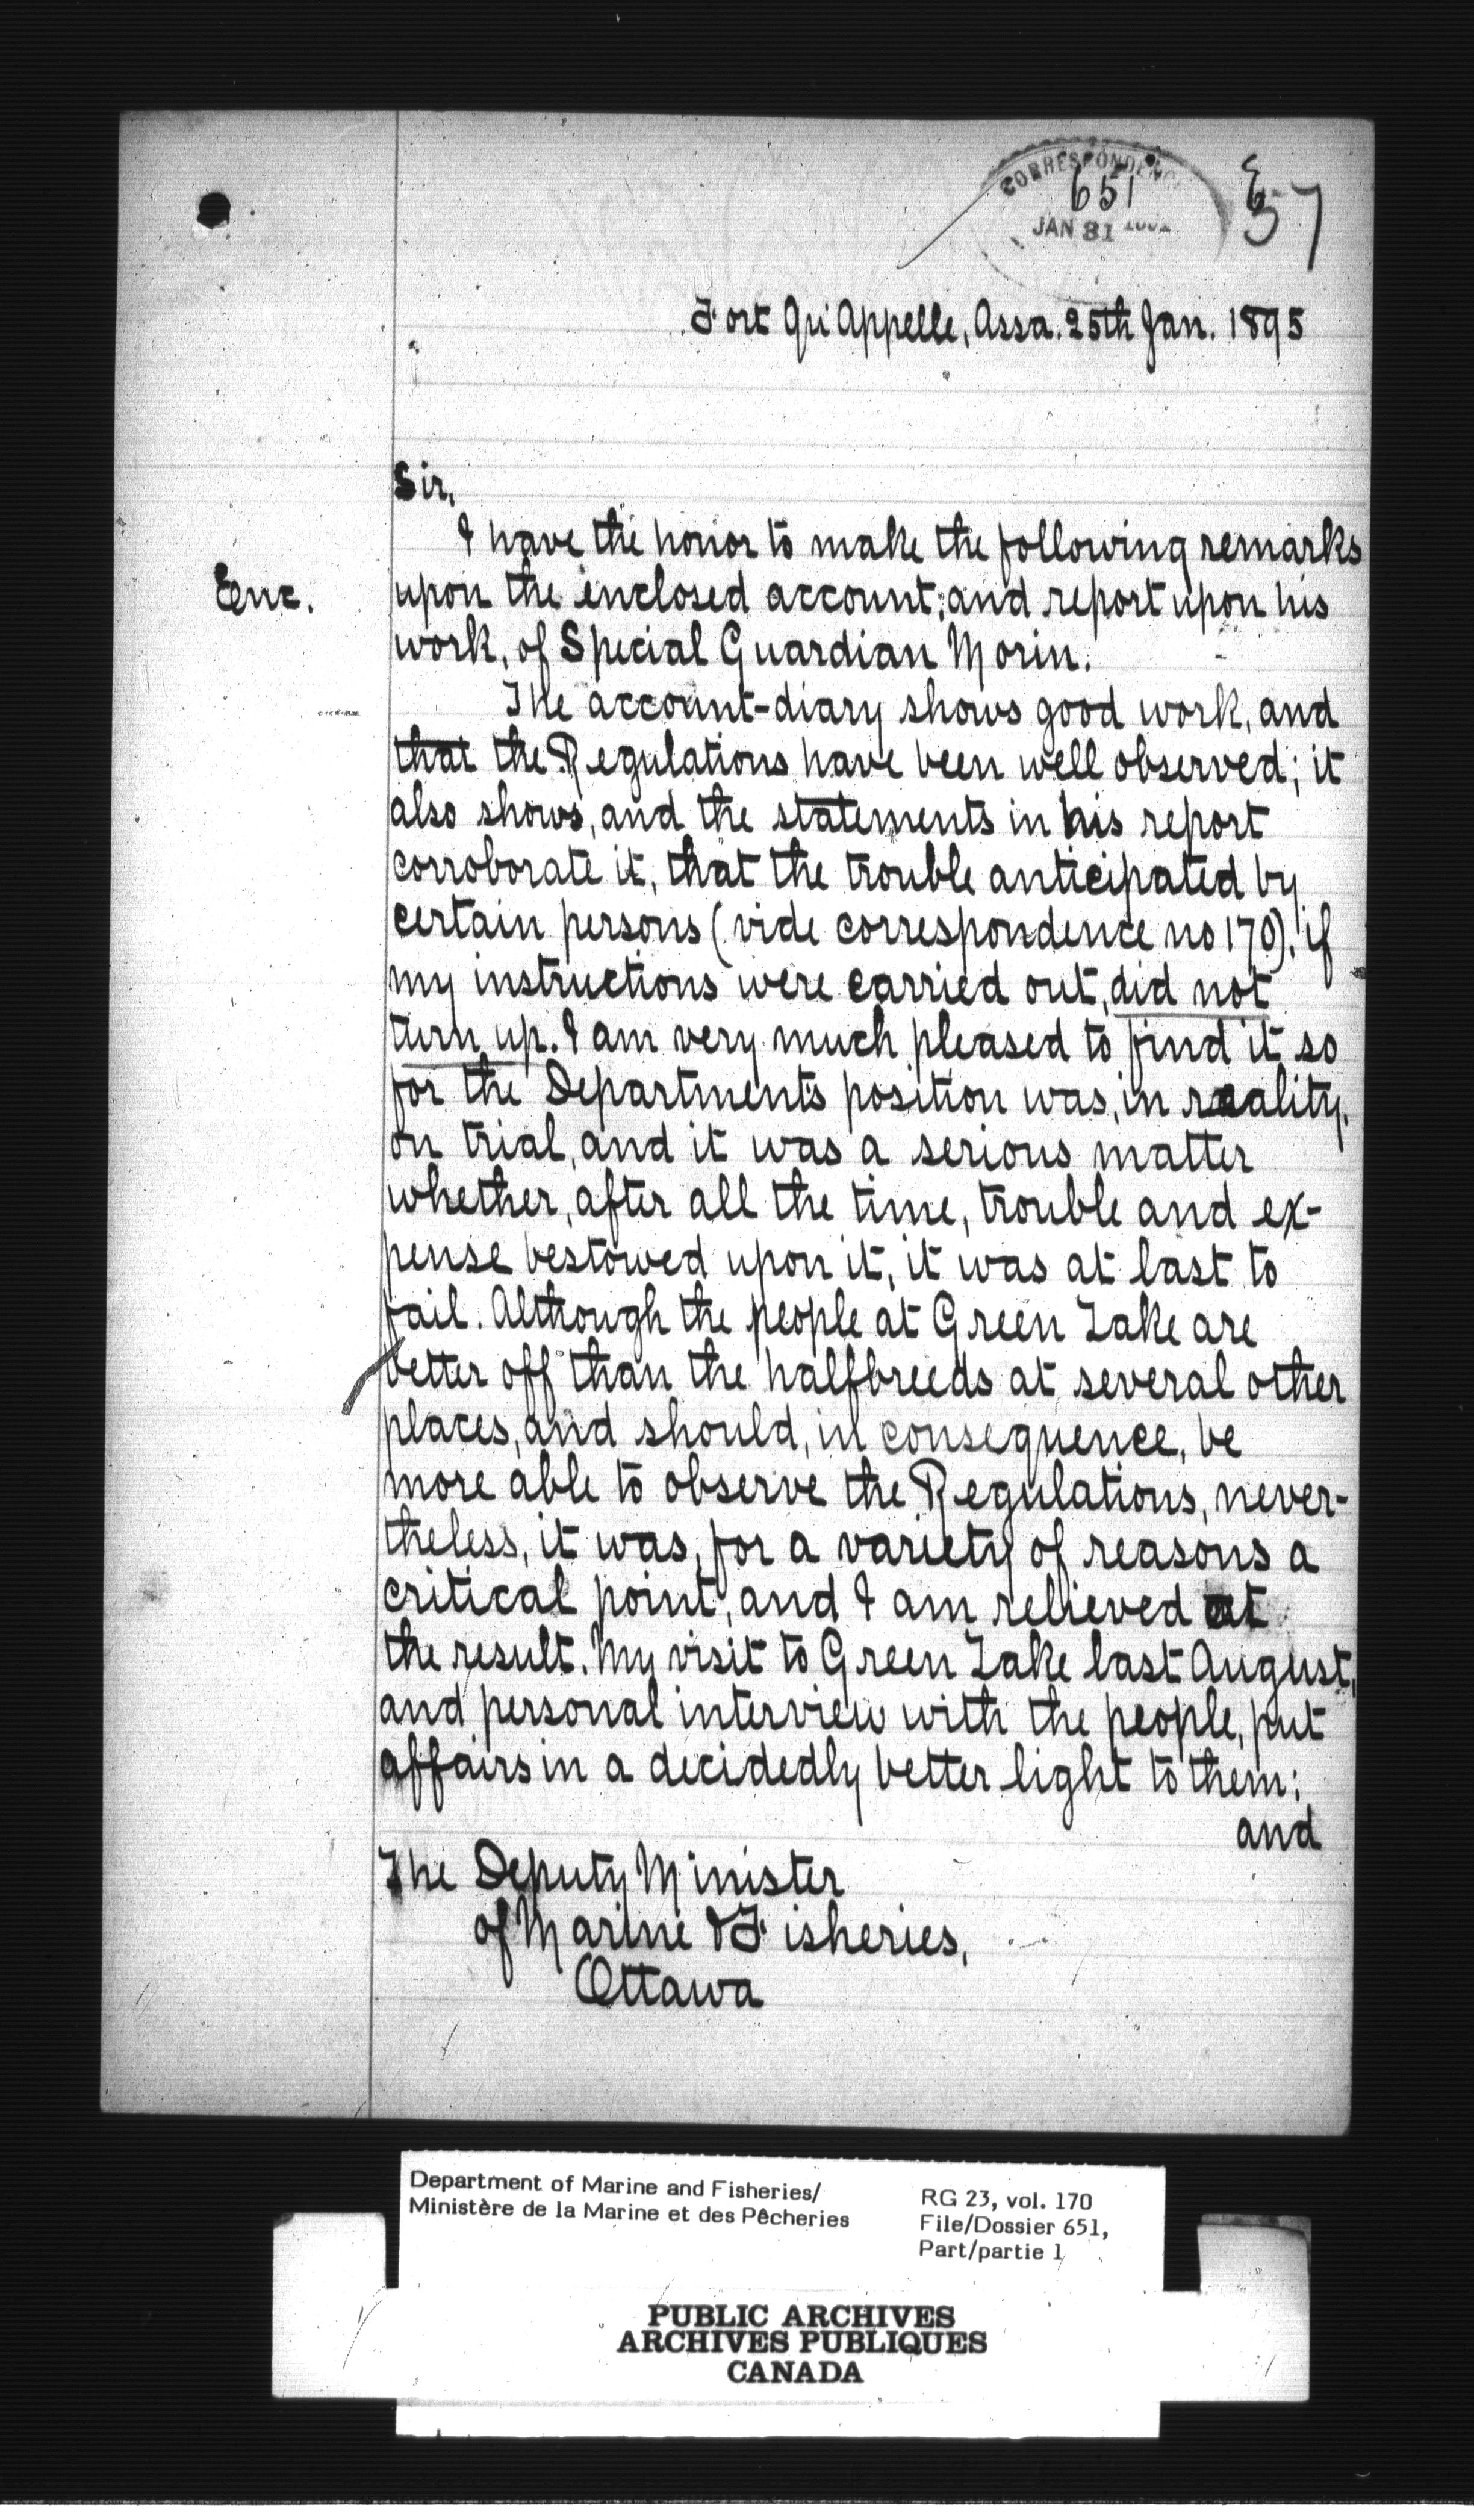 CORRESPONDENCE
651
JAN 31
57
Fort Qu'Appelle, Assa. 25th Jan. 1895
Sir,
I have the honor to make the following remarks
Enc.
upon the enclosed account; and report upon his
work, of Special Guardian Morin.
The account-diary shows good work, and
that the Regulations have been well observed; it
also shows, and the statements in his report
corroborate it, that the trouble anticipated by
certain persons (vide correspondence no 170), if
my instructions were carried out, did not
turn up. I am very much pleased to find it so
for the Department's position was, in reality,
on trial, and it was a serious matter
whether, after all the time, trouble and ex-
pense bestowed upon it, it was at last to
fail. Although the people at Green Lake are
better off than the halfbreeds at several other
places, and should, in consequence, be
more able to observe the Regulations, never-
theless, it was, for a variety of reasons a
critical point, and I am relieved at
the result. My visit to Green Lake last August,
and personal interview with the people, put
affairs in a decidedly better light to them;
and
The Deputy Minister
of Marine & Fisheries,
Ottawa
Department of Marine and Fisheries/
Ministère de la Marine et des Pêcheries
RG 23, vol. 170
File/Dossier 651,
Part/partie 1
PUBLIC ARCHIVES
ARCHIVES PUBLIQUES
CANADA